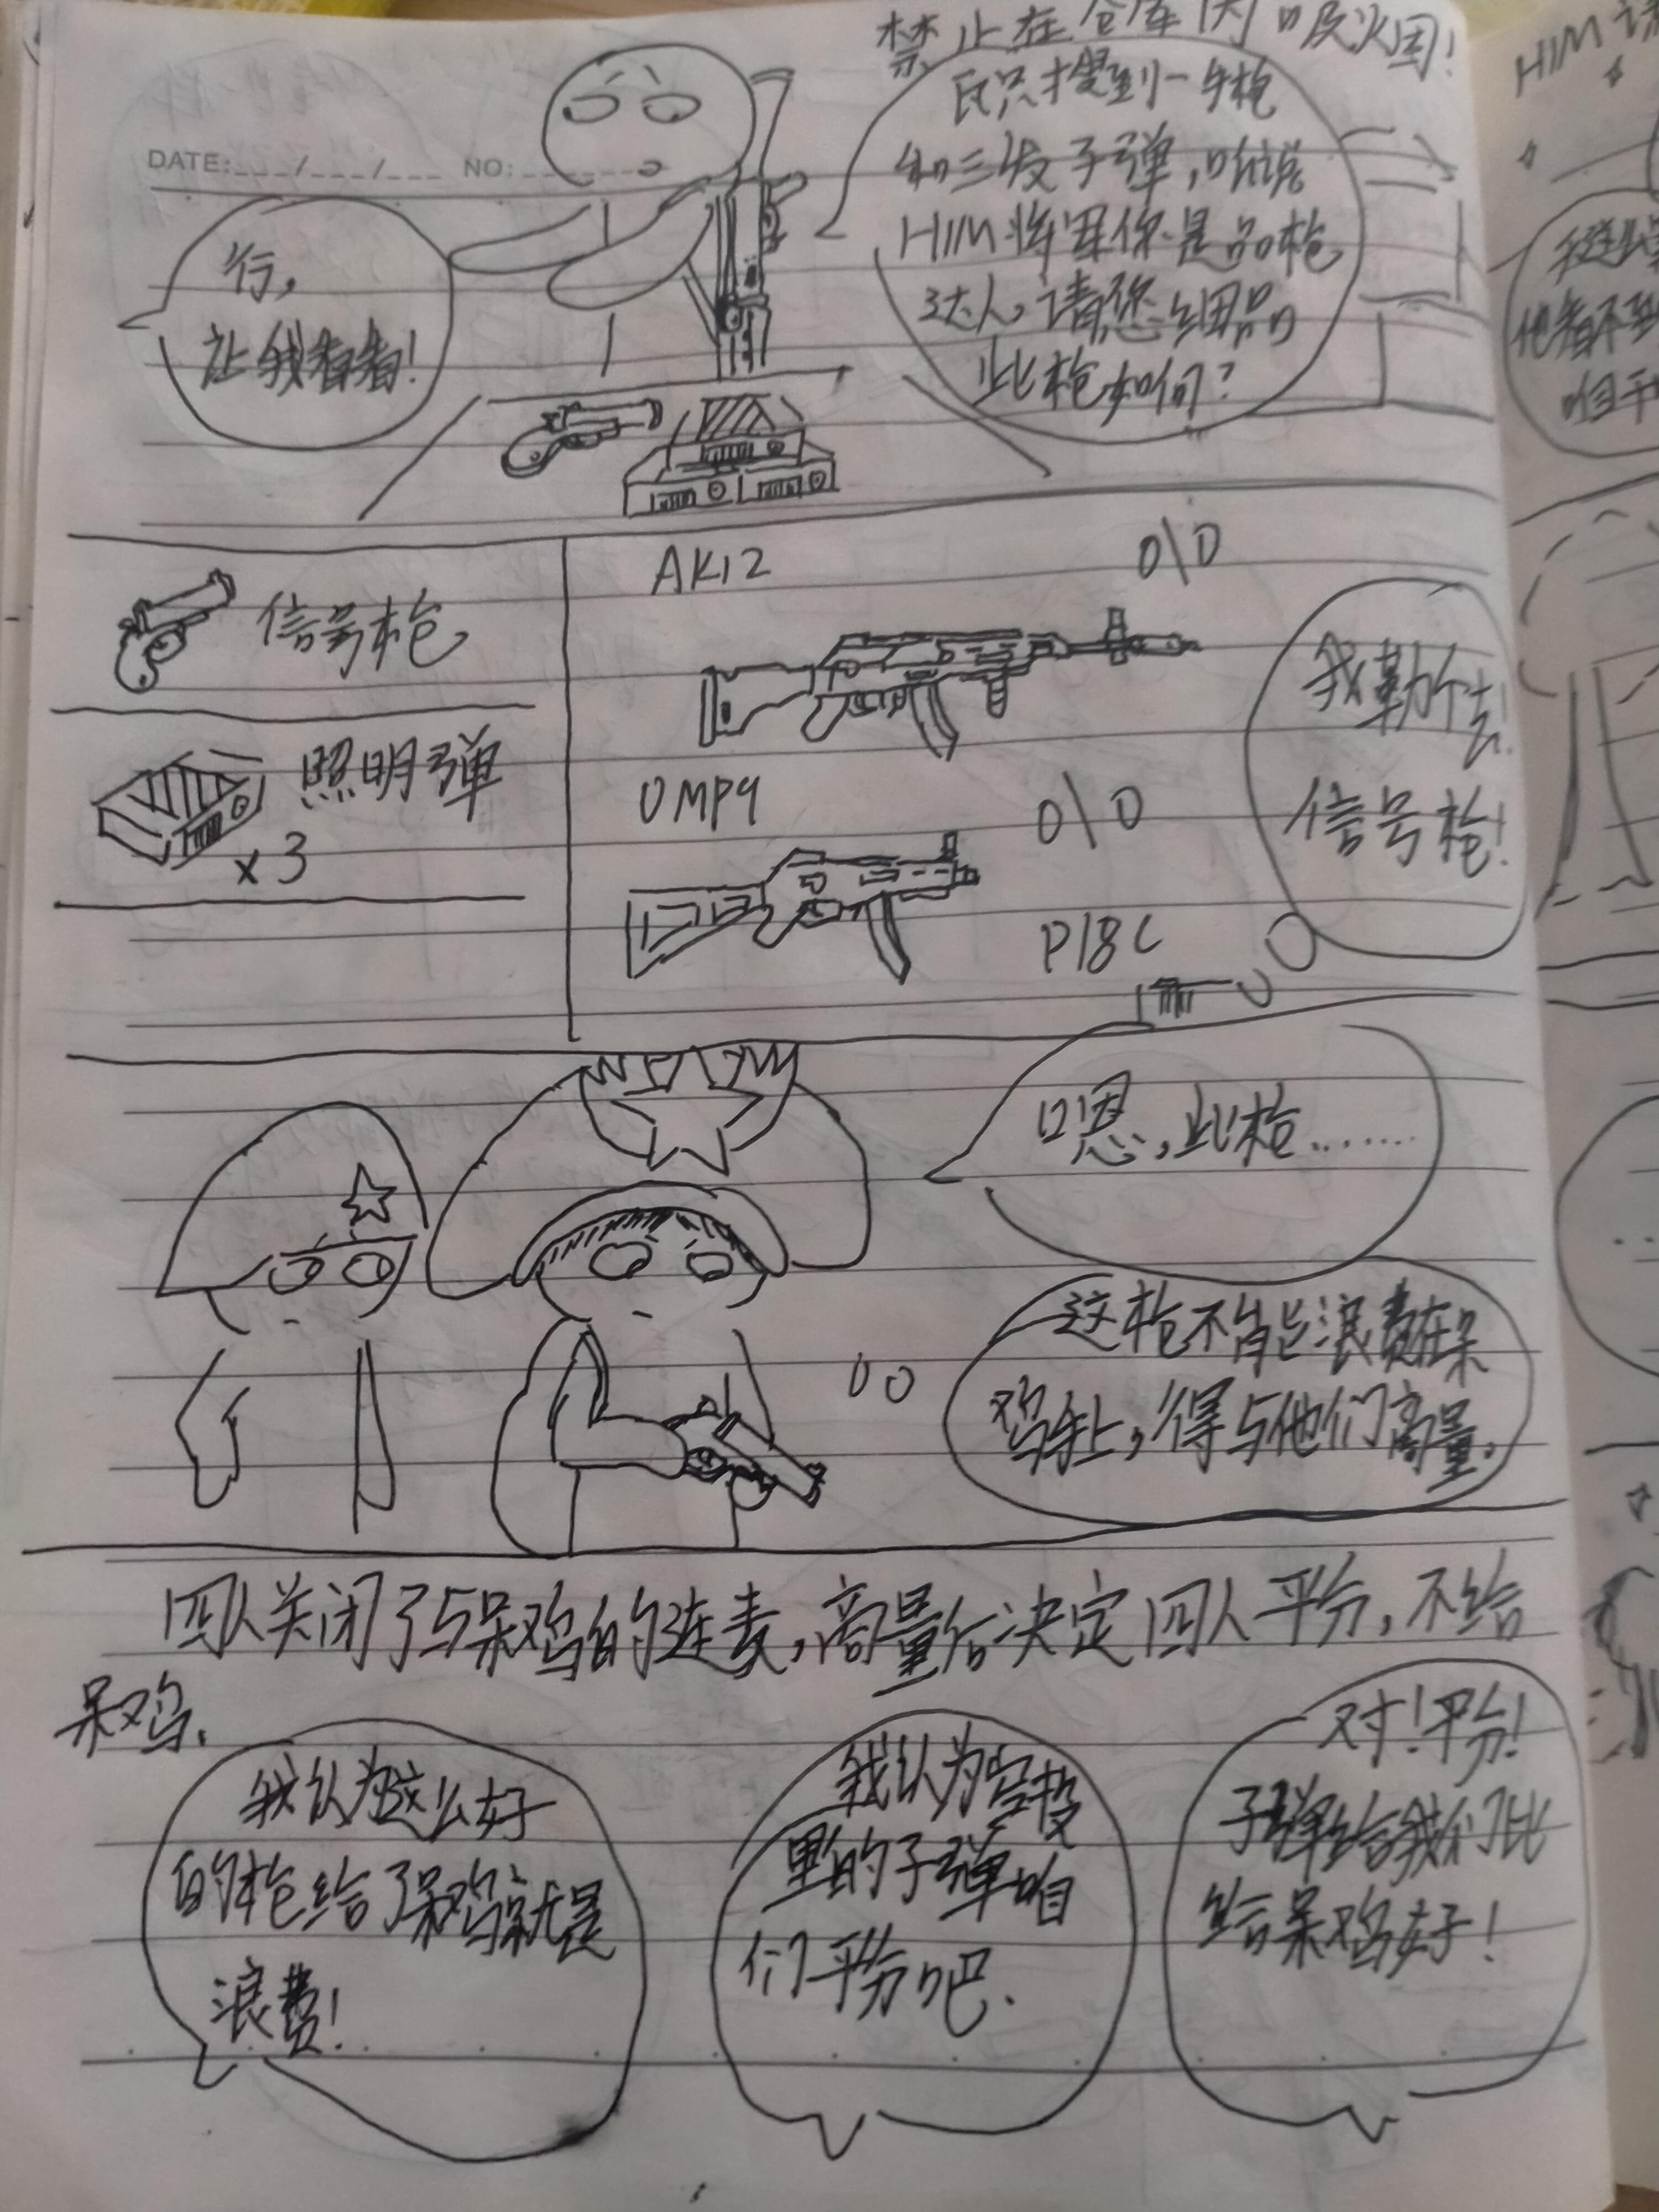 禁止在仓库内吸火因!
DATE:___/___/___ NO:
只搜到一午枪
和三发子弹,听说
HIM将军你是品枪
达人,请您细品
此枪如何?
行,
让我看看!
信号枪
照明弹
x3
AK12
0\0
UMP9
0\0
P18C
我勒个去!
信号枪!
嗯,此枪.......
这枪不能浪费在呆
鸡身上,得与他们商量.
四人关闭了与呆鸡的连麦,商量后决定四人平分,不给
呆鸡.
我认为这么好
的枪给了呆鸡就是
浪费!
我认为空投
里的子弹咱
们平分吧.
对!平分!
子弹给我们比
给呆鸡好!
HIM
他看不到
咱